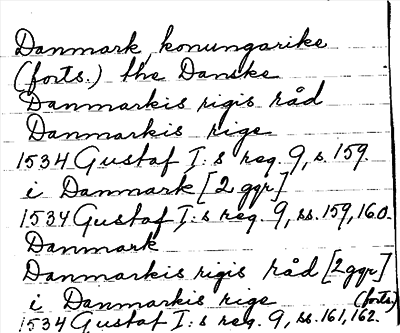 Danmark, konungarike
(forts.) the Danske
Danmarkis rigis råd
Danmarkis rige
1534 Gustaf I:s reg. 9, s. 159.
i Danmark [2 ggr]
1534 Gustaf I:s reg. 9, ss. 159, 160.
Danmark
Danmarkis rigis råd [2ggr]
i Danmarkis rige (forts)
1534 Gustaf I:s reg. 9, ss. 161, 162.